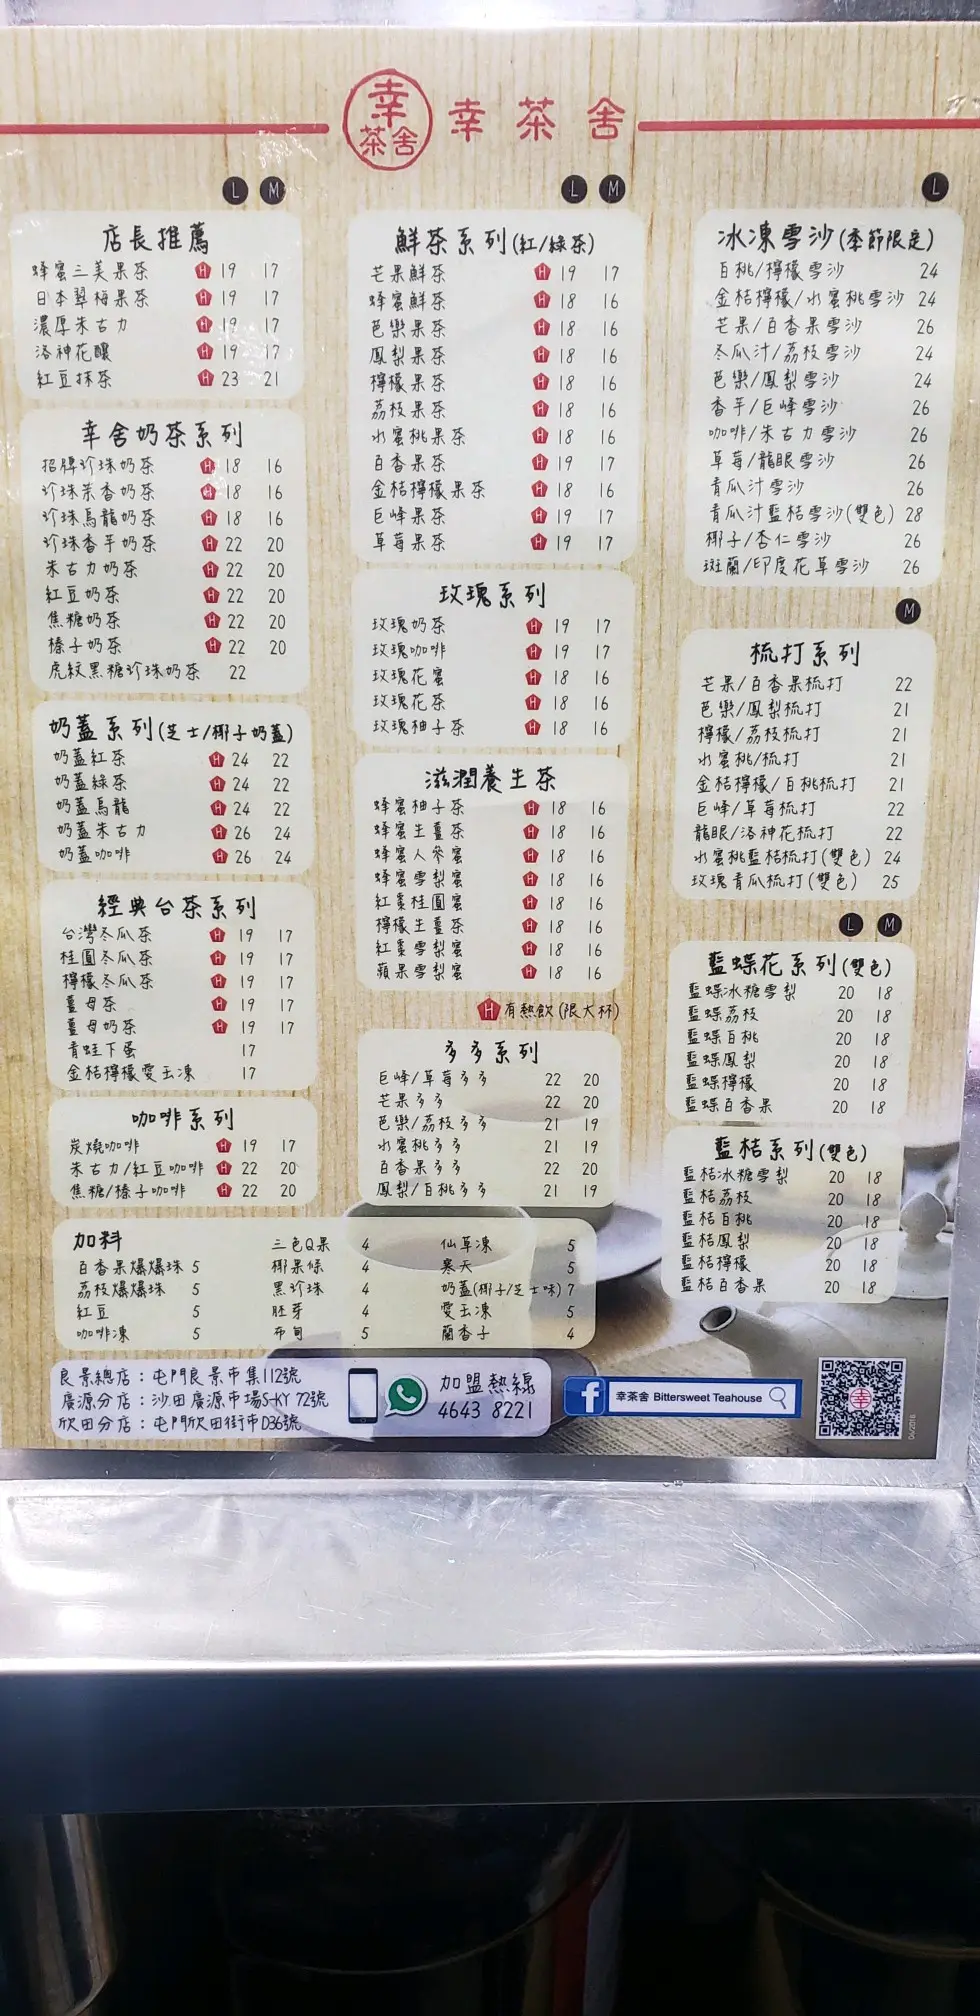 幸茶舍
幸茶舍
L M
店長推薦
蜂蜜三美果茶 H 19 17
日本翠梅果茶 H 19 17
濃厚朱古力 H 19 17
洛神花釀 H 19 17
紅豆抹茶 H 23 21
幸舍奶茶系列
招牌珍珠奶茶 H 18 16
珍珠茉香奶茶 H 18 16
珍珠烏龍奶茶 H 18 16
珍珠香芋奶茶 H 22 20
朱古力奶茶 H 22 20
紅豆奶茶 H 22 20
焦糖奶茶 H 22 20
榛子奶茶 H 22 20
虎紋黑糖珍珠奶茶 22
奶蓋系列(芝士/椰子奶蓋)
奶蓋紅茶 H 24 22
奶蓋綠茶 H 24 22
奶蓋烏龍 H 24 22
奶蓋朱古力 H 26 24
奶蓋咖啡 H 26 24
經典台茶系列
台灣冬瓜茶 H 19 17
桂圓冬瓜茶 H 19 17
檸檬冬瓜茶 H 19 17
薑母茶 H 19 17
薑母奶茶 H 19 17
青蛙下蛋 17
金桔檸檬愛玉凍 17
咖啡系列
炭燒咖啡 H 19 17
朱古力/紅豆咖啡 H 22 20
焦糖/榛子咖啡 H 22 20
L M
鮮茶系列(紅/綠茶)
芒果鮮茶 H 19 17
蜂蜜鮮茶 H 18 16
芭樂果茶 H 18 16
鳳梨果茶 H 18 16
檸檬果茶 H 18 16
荔枝果茶 H 18 16
水蜜桃果茶 H 18 16
百香果茶 H 19 17
金桔檸檬果茶 H 18 16
巨峰果茶 H 19 17
草莓果茶 H 19 17
玫瑰系列
玫瑰奶茶 H 19 17
玫瑰咖啡 H 19 17
玫瑰花蜜 H 18 16
玫瑰花茶 H 18 16
玫瑰柚子茶 H 18 16
滋潤養生茶
蜂蜜柚子茶 H 18 16
蜂蜜生薑茶 H 18 16
蜂蜜人參蜜 H 18 16
蜂蜜雪梨蜜 H 18 16
紅棗桂圓蜜 H 18 16
檸檬生薑茶 H 18 16
紅棗雪梨蜜 H 18 16
蘋果雪梨蜜 H 18 16
H 有熱飲(限大杯)
多多系列
巨峰/草莓多多 22 20
芒果多多 22 20
芭樂/荔枝多多 21 19
水蜜桃多多 21 19
百香果多多 22 20
鳳梨/百桃多多 21 19
L
冰凍雪沙(季節限定)
百桃/檸檬雪沙 24
金桔檸檬/水蜜桃雪沙 24
芒果/百香果雪沙 26
冬瓜汁/荔枝雪沙 24
芭樂/鳳梨雪沙 24
香芋/巨峰雪沙 26
咖啡/朱古力雪沙 26
草莓/龍眼雪沙 26
青瓜汁雪沙 26
青瓜汁藍桔雪沙(雙色) 28
椰子/杏仁雪沙 26
斑蘭/印度花草雪沙 26
M
梳打系列
芒果/百香果梳打 22
芭樂/鳳梨梳打 21
檸檬/荔枝梳打 21
水蜜桃/梳打 21
金桔檸檬/百桃梳打 21
巨峰/草莓梳打 22
龍眼/洛神花梳打 22
水蜜桃藍桔梳打(雙色) 24
玫瑰青瓜梳打(雙色) 25
L M
藍蝶花系列(雙色)
藍蝶冰糖雪梨 20 18
藍蝶荔枝 20 18
藍蝶百桃 20 18
藍蝶鳳梨 20 18
藍蝶檸檬 20 18
藍蝶百香果 20 18
藍桔系列(雙色)
藍桔冰糖雪梨 20 18
藍桔荔枝 20 18
藍桔百桃 20 18
藍桔鳳梨 20 18
藍桔檸檬 20 18
藍桔百香果 20 18
加料 三色Q果 4 仙草凍 5
百香果爆爆珠 5 椰果條 4 寒天 5
荔枝爆爆珠 5 黑珍珠 4 奶蓋(椰子/芝士味) 7
紅豆 5 胚芽 4 愛玉凍 5
咖啡凍 5 布甸 5 蘭香子 4
良景總店：屯門良景市集112號
廣源分店：沙田廣源市場S-KY 72號
欣田分店：屯門欣田街市D36號
加盟熱線
4643 8221
f 幸茶舍 Bittersweet Teahouse
幸
06/2018